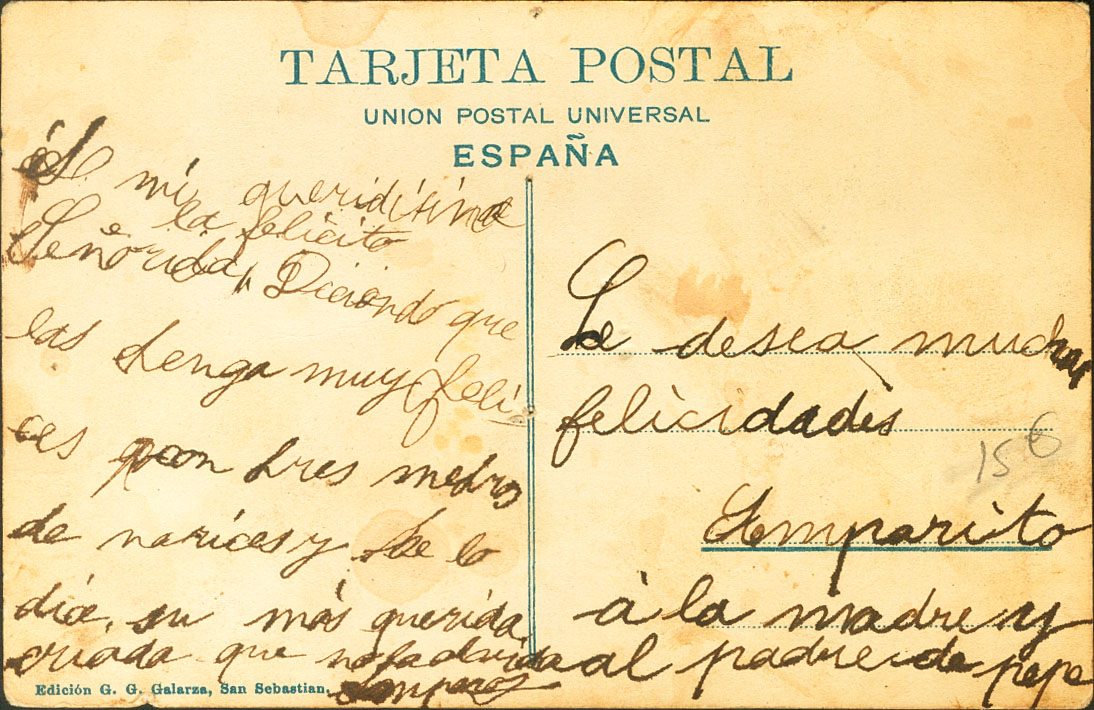 TARJETA POSTAL
UNION POSTAL UNIVERSAL
ESPAÑA
mi queridísima
la felicito
Señorida, Diciendo que
las tenga muy feli
ces con tres metros
de narices y se lo
dice su más querida
criada que no la olvida
Amparo
Le desea muchas
felicidades
Amparito
á la madre y
al padre de pepe
156
Edición G. G. Galarza, San Sebastian.